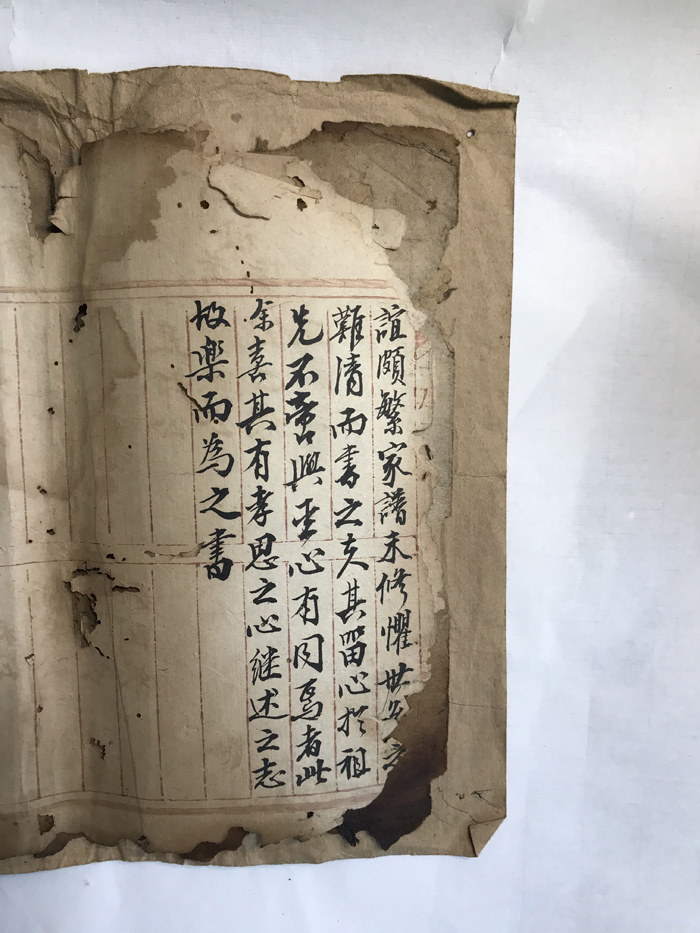 誼頗繁家譜未修懼世
難清而書之夫其留心於祖
先不啻與至心有同焉者此
余喜其有孝思之心继述之志
故楽而為之書